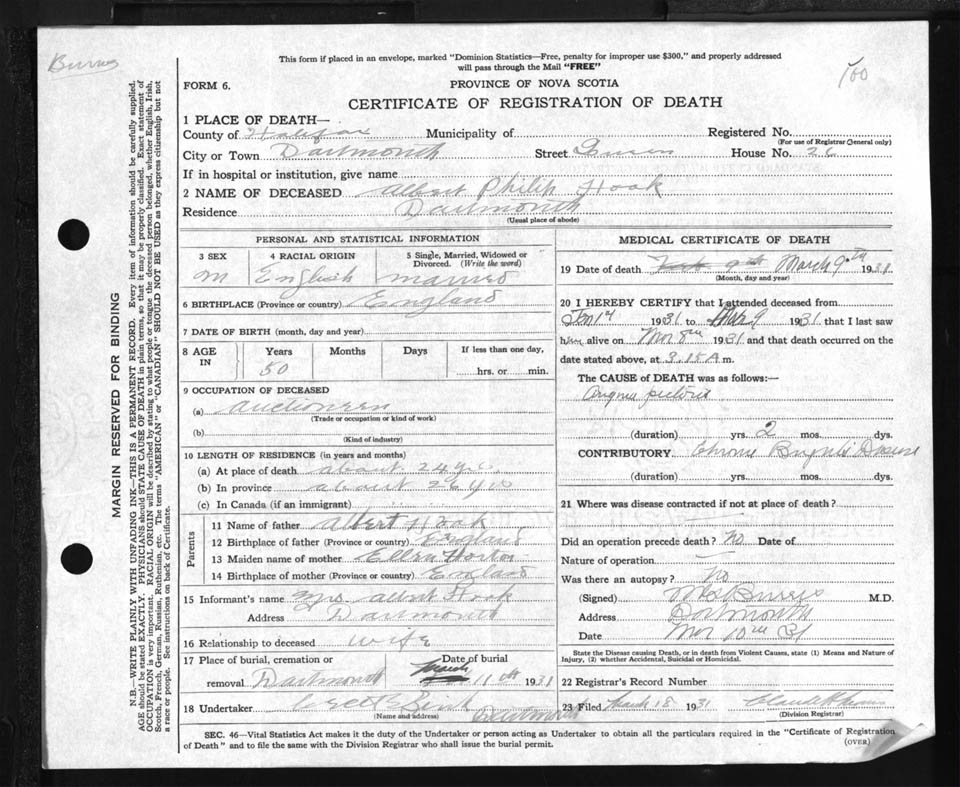 Burris
This form if placed in an envelope, marked "Dominion Statistics—Free, penalty for improper use $300," and properly addressed
will pass through the Mail "FREE"
100
FORM 6.
PROVINCE OF NOVA SCOTIA
CERTIFICATE OF REGISTRATION OF DEATH
1 PLACE OF DEATH—
County of Halifax Municipality of Registered No.
(For use of Registrar General only)
City or Town Dartmouth Street Queen House No. 26
If in hospital or institution, give name
2 NAME OF DECEASED Albert Philip Hook
Residence Dartmouth
(Usual place of abode)
PERSONAL AND STATISTICAL INFORMATION
3 SEX 4 RACIAL ORIGIN 5 Single, Married, Widowed or
Divorced. (Write the word)
M English married
6 BIRTHPLACE (Province or country) England
7 DATE OF BIRTH (month, day and year)
8 AGE IN Years Months Days If less than one day,
50 hrs. or min.
9 OCCUPATION OF DECEASED
(a) Auctioneer
(Trade or occupation or kind of work)
(b)
(Kind of industry)
10 LENGTH OF RESIDENCE (in years and months)
(a) At place of death about 24 yrs
(b) In province about 26 yrs
(c) In Canada (if an immigrant)
Parents
11 Name of father Albert Hook
12 Birthplace of father (Province or country) England
13 Maiden name of mother Ellen Horton
14 Birthplace of mother (Province or country) England
15 Informant's name Mrs Albert Hook
Address Dartmouth
16 Relationship to deceased wife
17 Place of burial, cremation or Date of burial
removal Dartmouth March 11th 1931
18 Undertaker Dartmouth
(Name and address)
MEDICAL CERTIFICATE OF DEATH
19 Date of death March 9th 1931
(Month, day and year)
20 I HEREBY CERTIFY that I attended deceased from
Jan 1st 1931 to Mar 9 1931 that I last saw
him alive on Mar 8th 1931 and that death occurred on the
date stated above, at 3.15 A m.
The CAUSE of DEATH was as follows:—
Angina pectoris
(duration) yrs. 2 mos. dys.
CONTRIBUTORY Chronic Bright's Disease
(duration) yrs. mos. dys.
21 Where was disease contracted if not at place of death?
Did an operation precede death? No Date of
Nature of operation
Was there an autopsy? No
(Signed) Burris M.D.
Address Dartmouth
Date Mar 10th 31
State the Disease causing Death, or in death from Violent Causes, state (1) Means and Nature of
Injury, (2) whether Accidental, Suicidal or Homicidal.
22 Registrar's Record Number
23 Filed March 18 1931
(Division Registrar)
SEC. 46—Vital Statistics Act makes it the duty of the Undertaker or person acting as Undertaker to obtain all the particulars required in the "Certificate of Registration
of Death" and to file the same with the Division Registrar who shall issue the burial permit.
(OVER)
MARGIN RESERVED FOR BINDING
N.B.—WRITE PLAINLY, WITH UNFADING INK—THIS IS A PERMANENT RECORD. Every item of information should be carefully supplied.
AGE should be stated EXACTLY. PHYSICIANS should STATE CAUSE OF DEATH in plain terms, so that it may be properly classified. Exact statement of
OCCUPATION is very important. RACIAL ORIGIN will be described by stating to what people or tongue the deceased person belonged, whether English, Irish,
Scotch, French, German, Russian, Ruthenian, etc. The terms "AMERICAN" or "CANADIAN" SHOULD NOT BE USED as they express citizenship but not
a race or people. See instructions on back of Certificate.